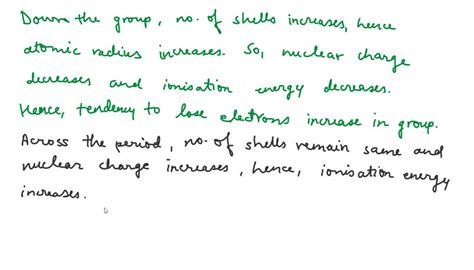 Down the group, no. of shells increases, hence
atomic radius increases. So, nuclear charge
decreases and ionisation energy decreases.
Hence, tendency to lose electrons increase in group.
Across the period, no. of shells remain same and
nuclear charge increases, hence, ionisation energy
increases.